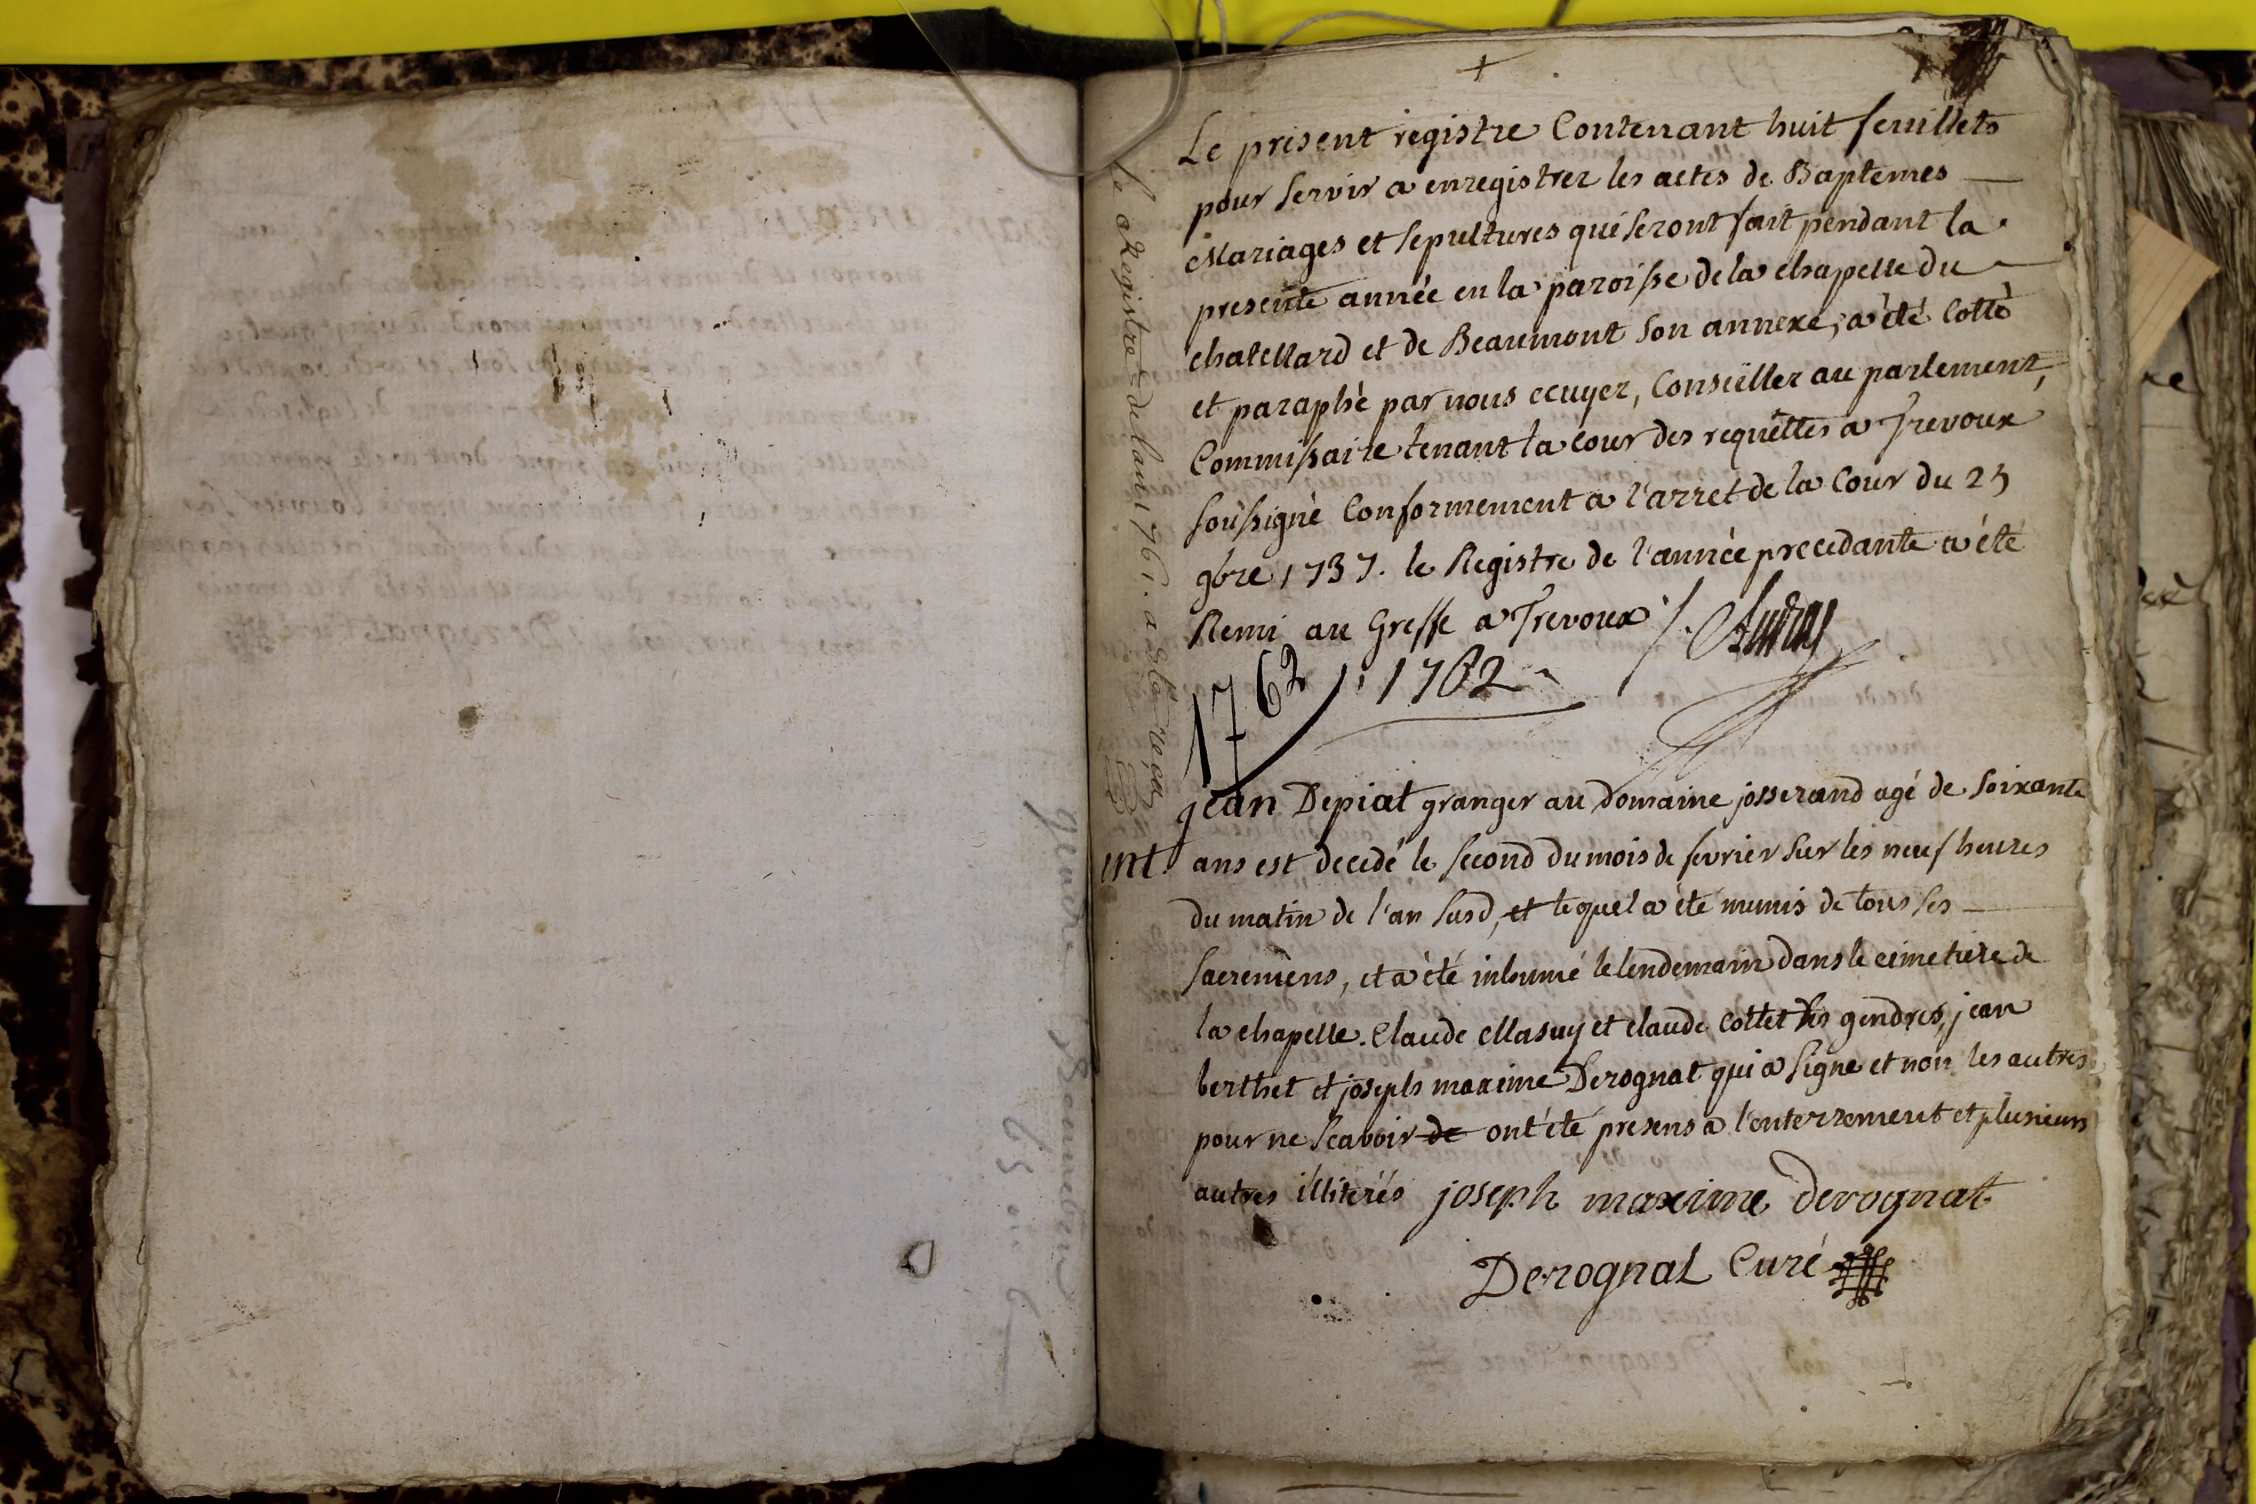 +
Le present registre Contenant huit feuillets
pour servir a enregistrer les actes de Baptemes
Mariages et sepultures qui seront fait pendant la
presente année en la paroisse de la chapelle du
chatellard et de Beaumont son annexe, a été Cotté
et paraphé par nous ecuyer, Conseiller au parlement,
Commissaire tenant la cour des requêttes a Trevoux
soussigné Conformement a l'arret de la Cour du 25
9bre 1737. le Registre de l'année precedante a été
Remi au Greffe a Trevoux
1762 1762
jean Depiat granger au domaine josserand agé de soixante
ans est decedé le second du mois de fevrier sur les neuf heures
du matin de l'an susd, et lequel a été munis de tous ses
sacremens, et a été inhumé le lendemain dans le cimetiere de
la chapelle. Claude Masuy et claude Collet ses gendres, jean
berthet et joseph maxime Derognat qui a signé et non les autres
pour ne scavoir de ont été presens a l'enterrement et plusieurs
autres illiterés joseph maxime derognat
Derognat Curé
ent
Le Registre de l'an 1761. a été